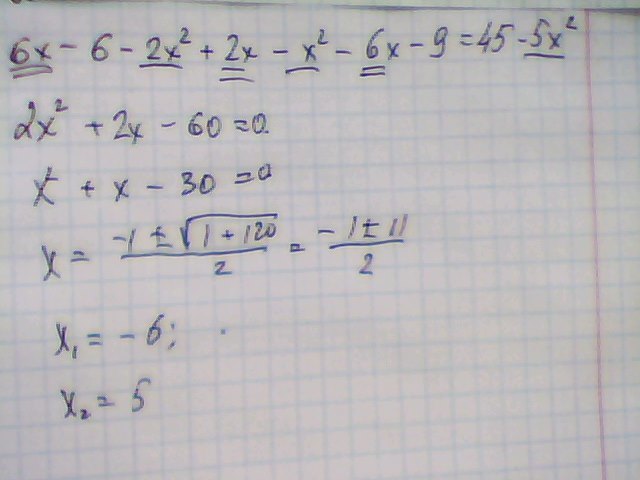 6x - 6 - 2x² + 2x - x² - 6x - 9 = 45 - 5x²
2x² + 2x - 60 = 0
x² + x - 30 = 0
x = (-1 ± √(1 + 120))/2 = (-1 ± 11)/2
x₁ = -6;
x₂ = 5